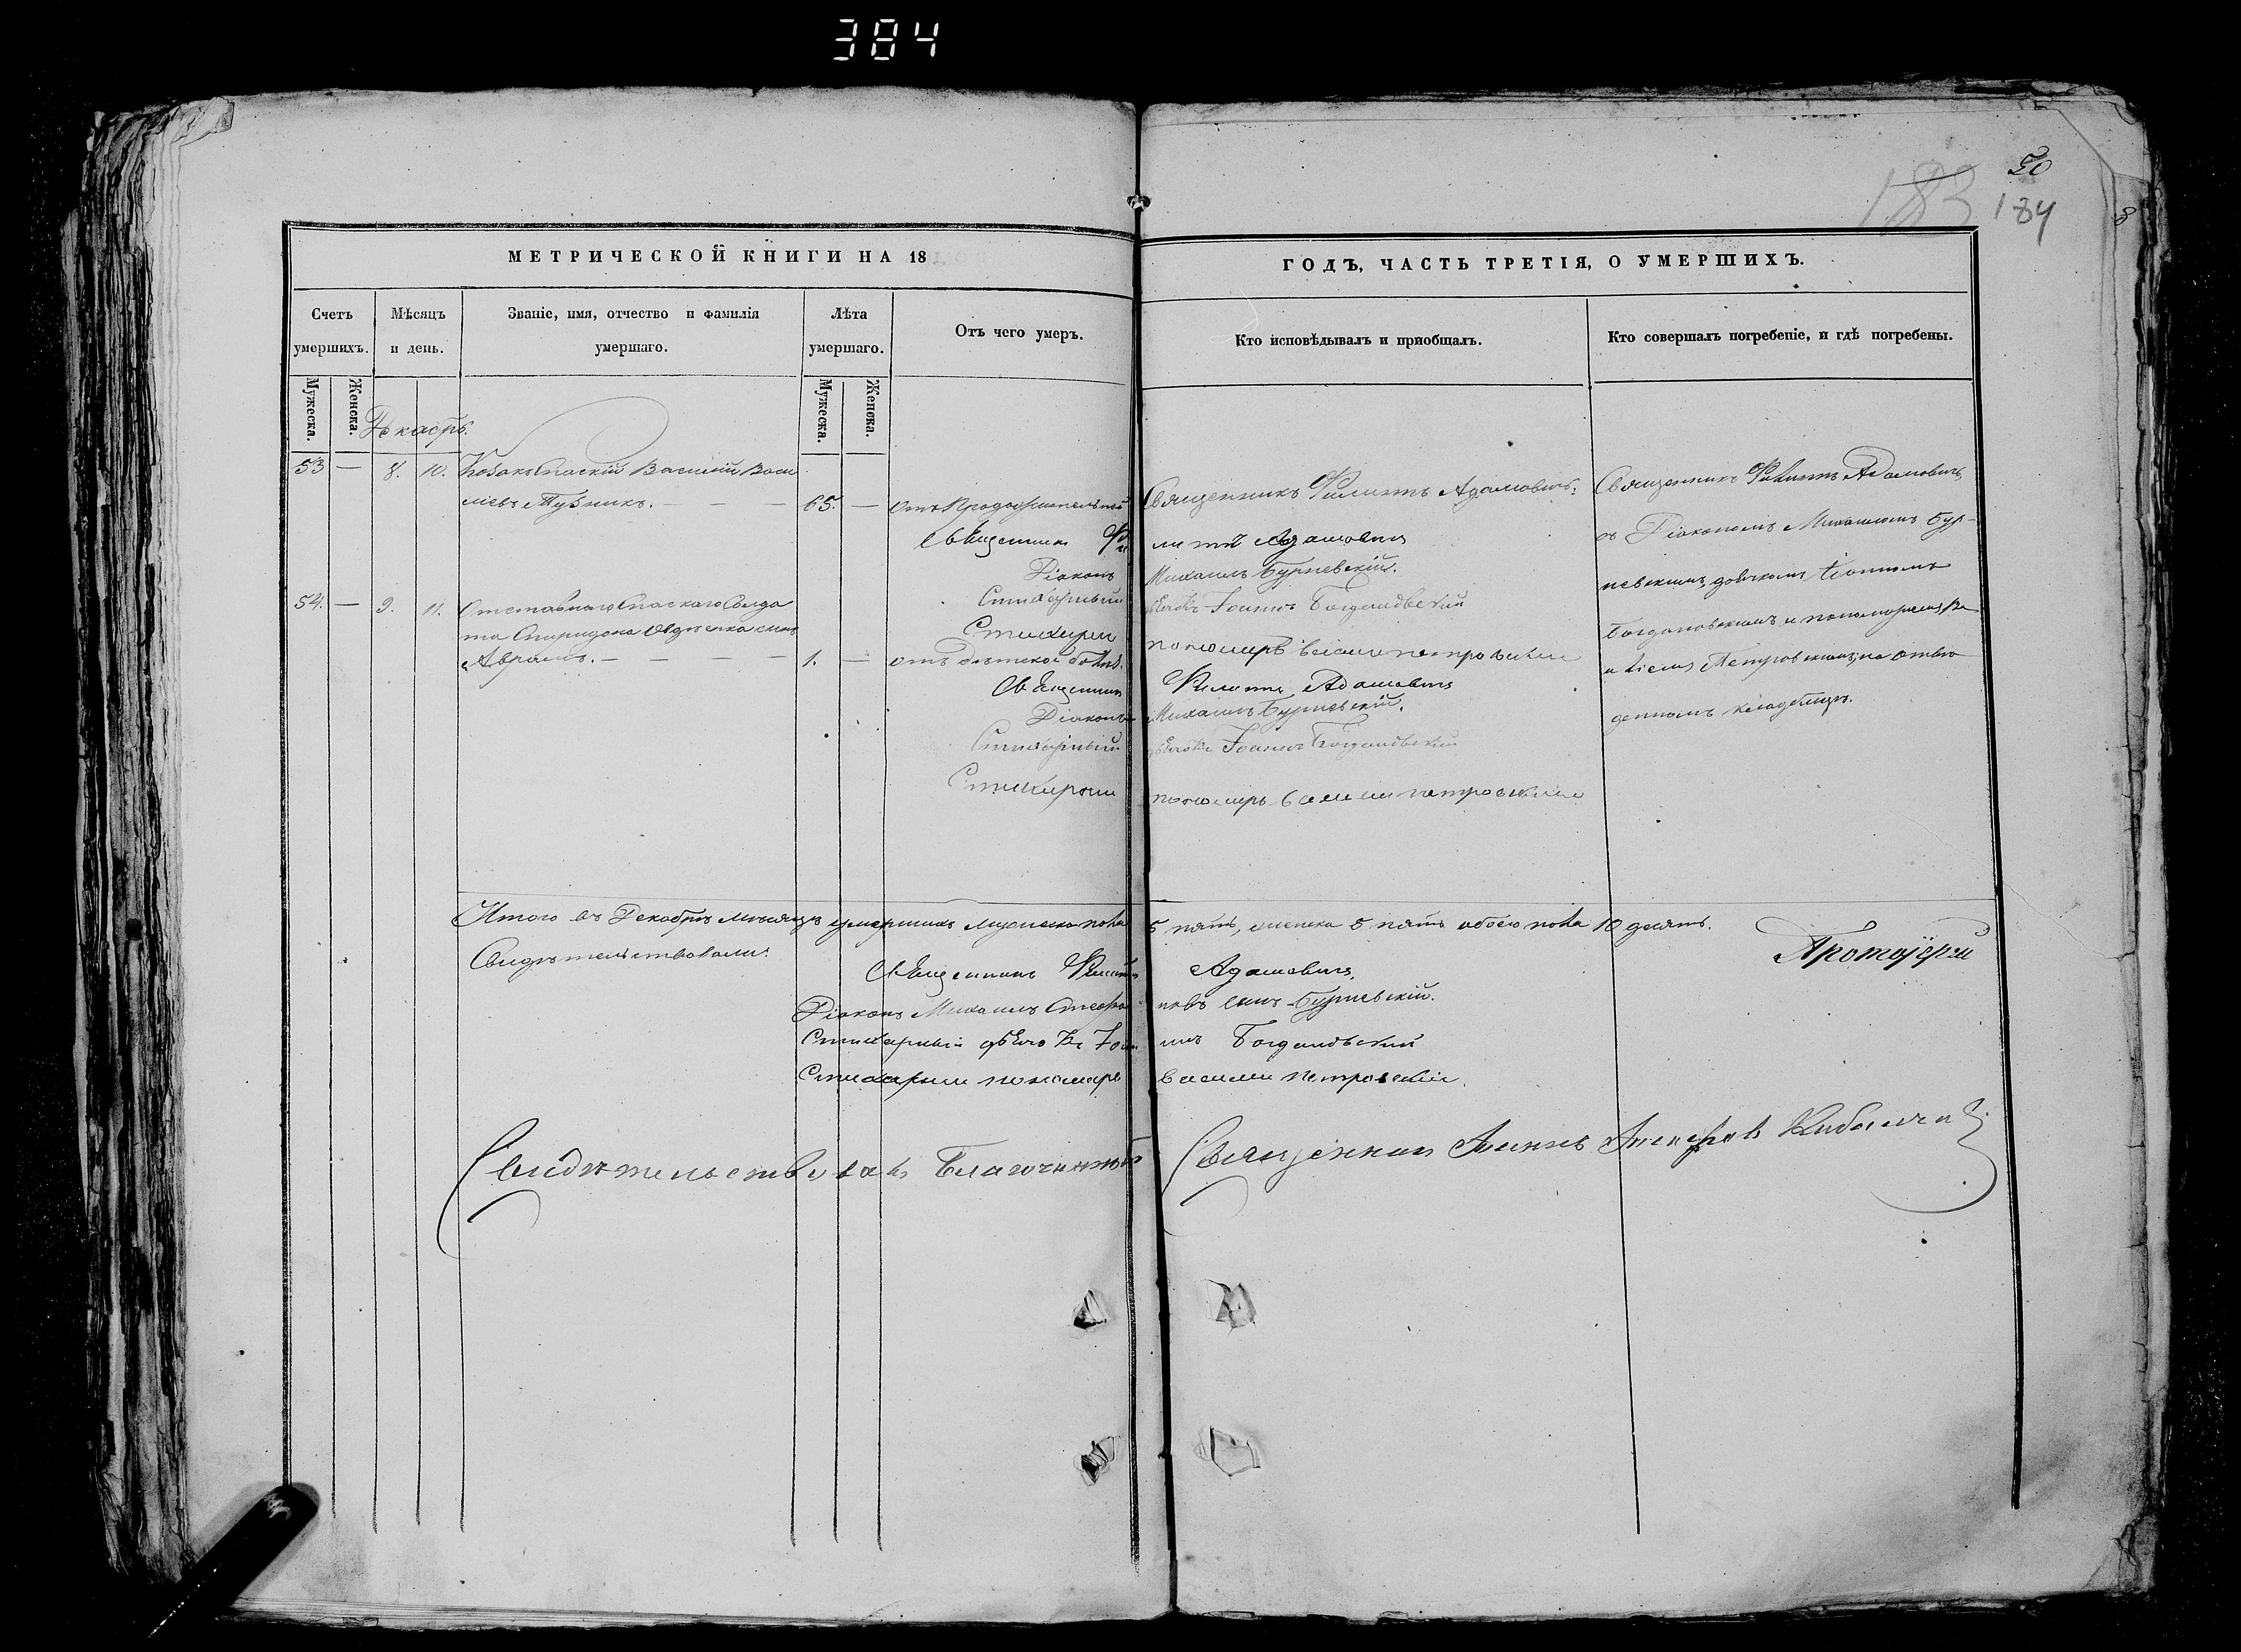 384
50
183 184
8
МЕТРИЧЕСКОЙ КНИГИ НА 18
ГОДЪ, ЧАСТЬ ТРЕТІЯ, О УМЕРШИХЪ.
Счетъ умершихъ.
Мѣсяцъ и день.
Званіе, имя, отчество и фамилія умершаго.
Лѣта умершаго.
Отъ чего умеръ.
Кто исповѣдывалъ и пріобщалъ.
Кто совершалъ погребеніе, и гдѣ погребены.
Мужеска.
Женска.
Мужеска.
Женска.
Декабрь.
53 — 8. 10. Козакъ Спаскій Василій Васи
ліевъ Тузникъ. — — — 65. —
Священникъ Филиппъ Адамовичъ
Священникъ Филиппъ Адамовичъ
съ Діакономъ Михаиломъ Бур-
невскимъ, дьячкомъ Іоанномъ
Богдановскимъ и пономаремъ Ва
силіемъ Петровскимъ, на отве
денномъ кладбищѣ.
Священникъ Филиппъ Адамовичъ
Діаконъ Михаилъ Бурневскій.
Стихарный дьячокъ Іоаннъ Богдановскій
Стихарный пономарь Василій Петровскій
54. — 9. 11. Отставнаго Спаскаго Солда
та Спиридона Овдѣенка сынъ
Аврамъ. — — — — 1. — отъ дѣтской болѣз.
Священникъ Филиппъ Адамовичъ
Діаконъ Михаилъ Бурневскій.
Стихарный дьячокъ Іоаннъ Богдановскій
Стихарный пономарь Василій Петровскій
Итого въ Декабрѣ мѣсяцѣ умершихъ мужеска пола 5 пять, женска 5 пять обоего пола 10 десять.
Свидѣтельствовали:
Протоіерей
Священникъ Филиппъ Адамовичъ
Діаконъ Михаилъ Стефановъ сынъ Бурневскій.
Стихарный дьячокъ Іоаннъ Богдановскій
Стихарный пономарь Василій Петровскій.
Свидѣтельствовалъ Благочинный Священникъ